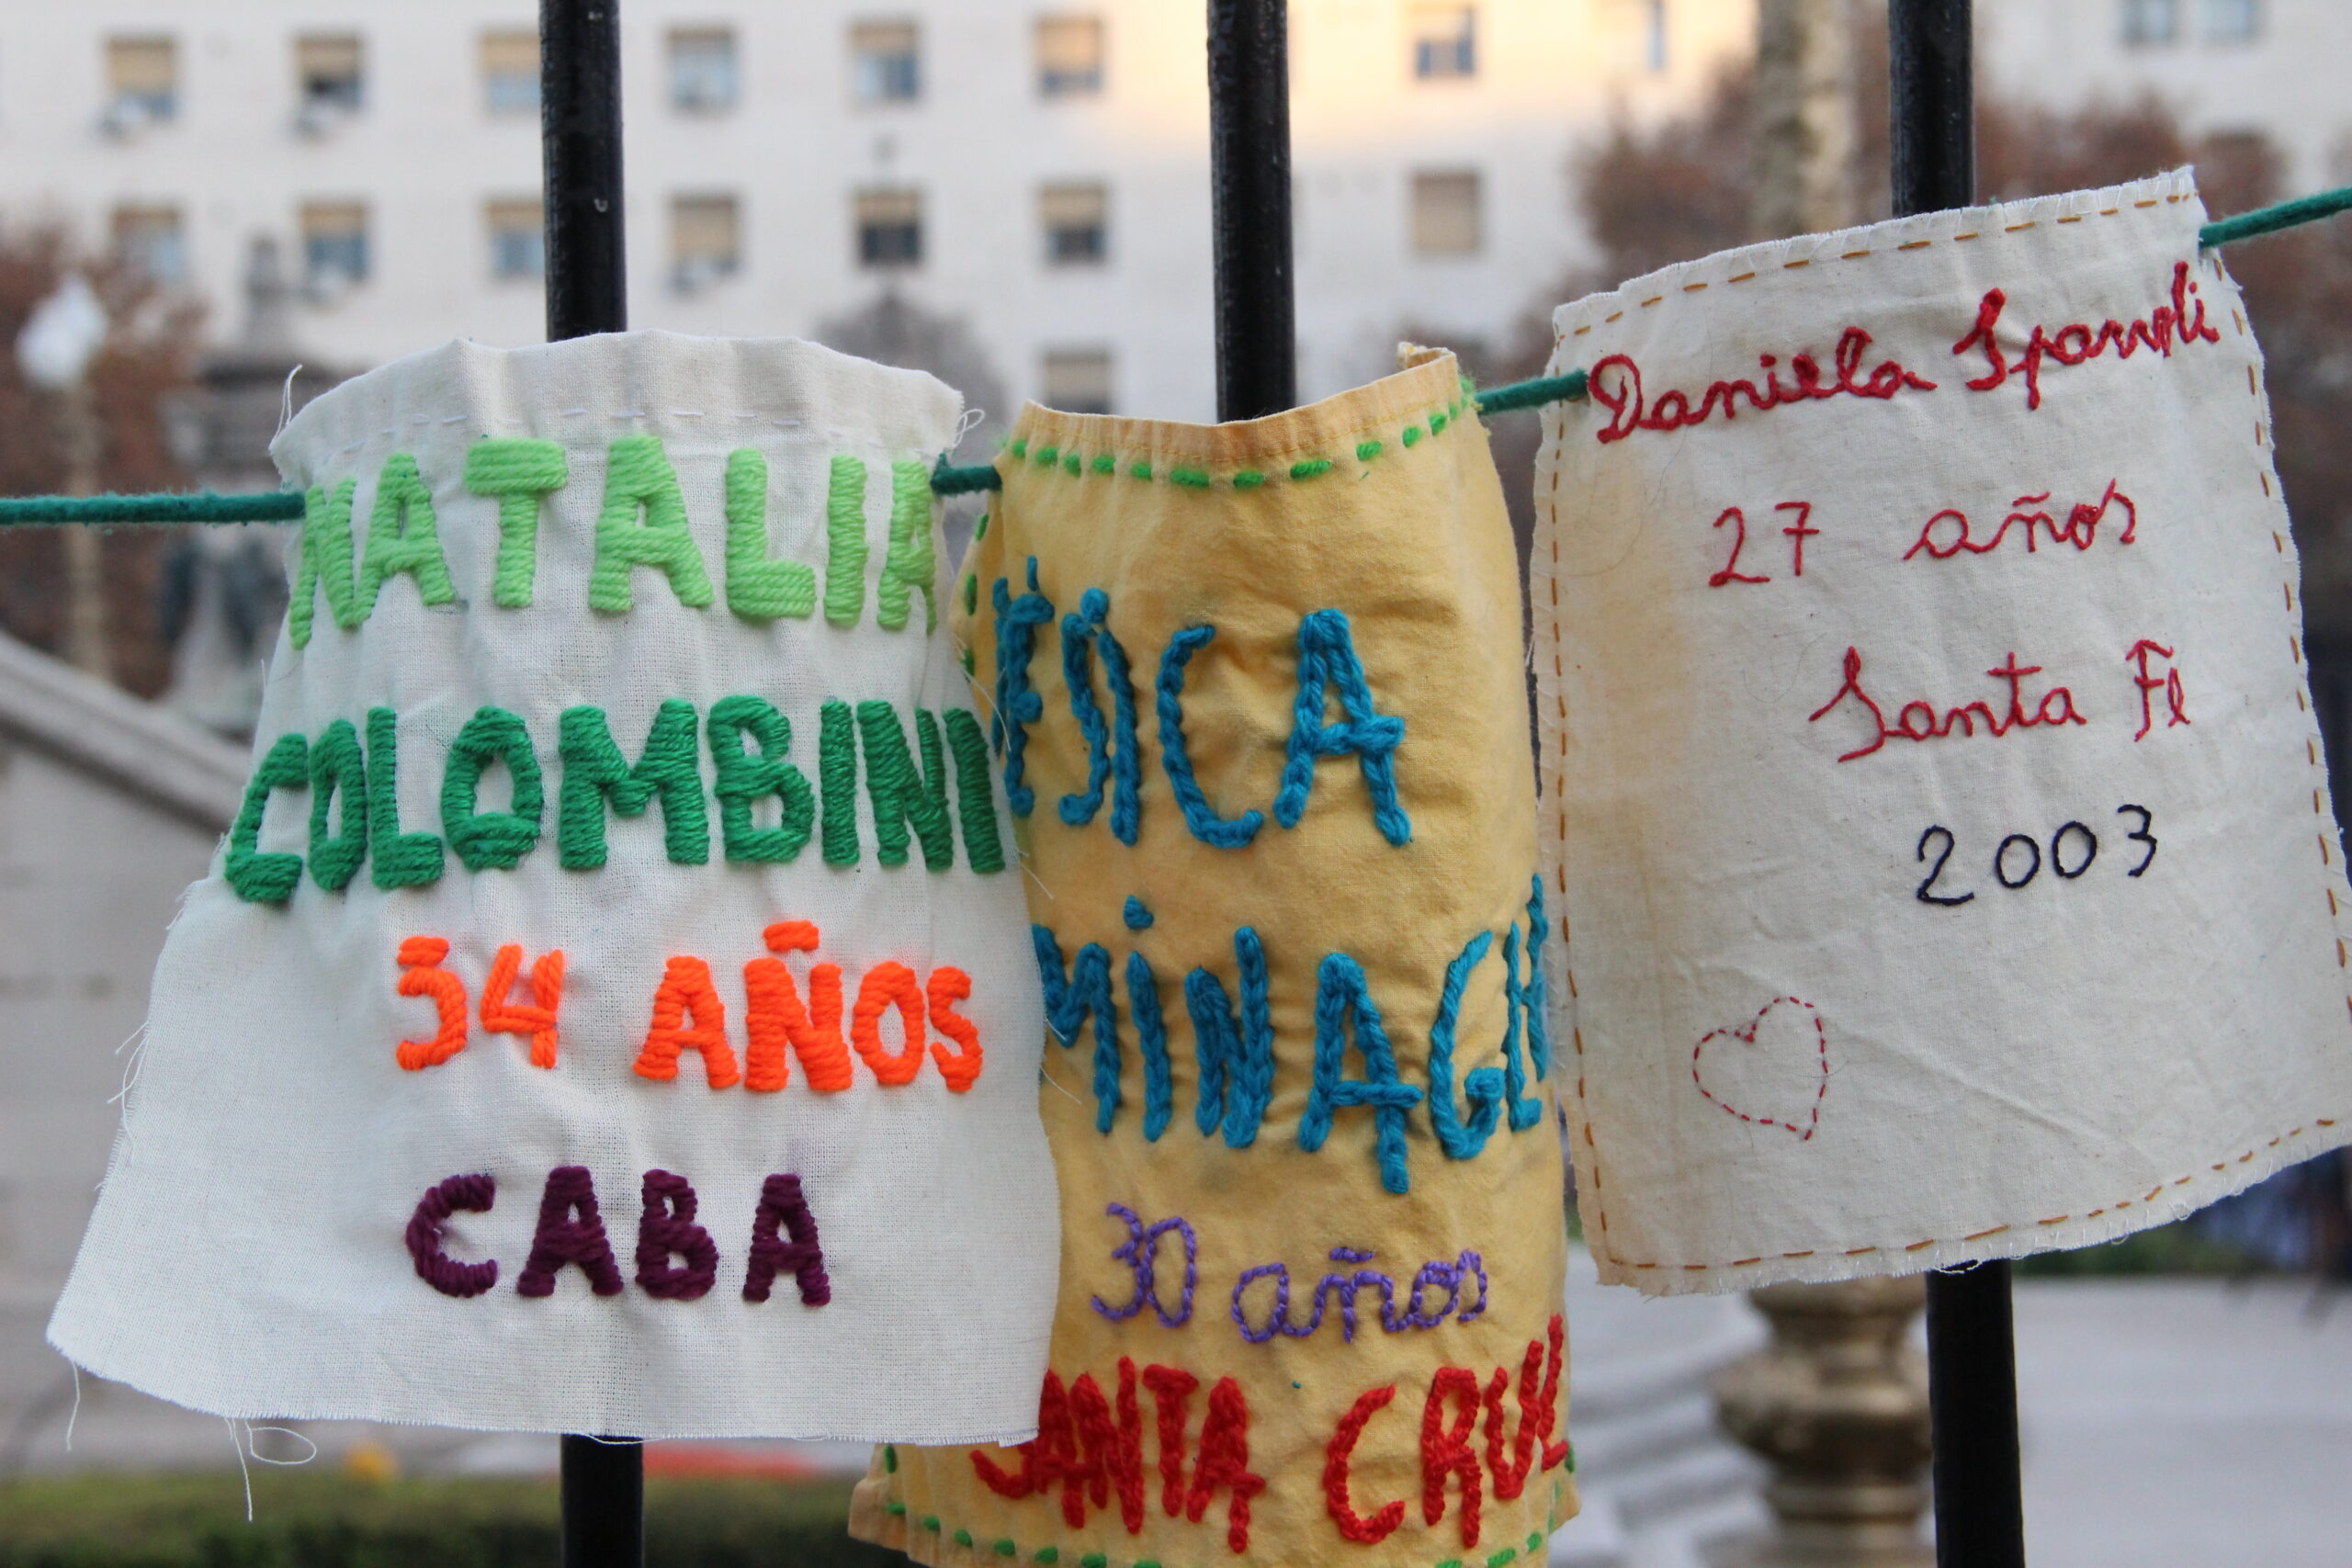 NATALIA
COLOMBINI
34 AÑOS
CABA
ÉSICA
MINAGL
30 años
SANTA CRUZ
Daniela Sparvoli
27 años
Santa Fe
2003